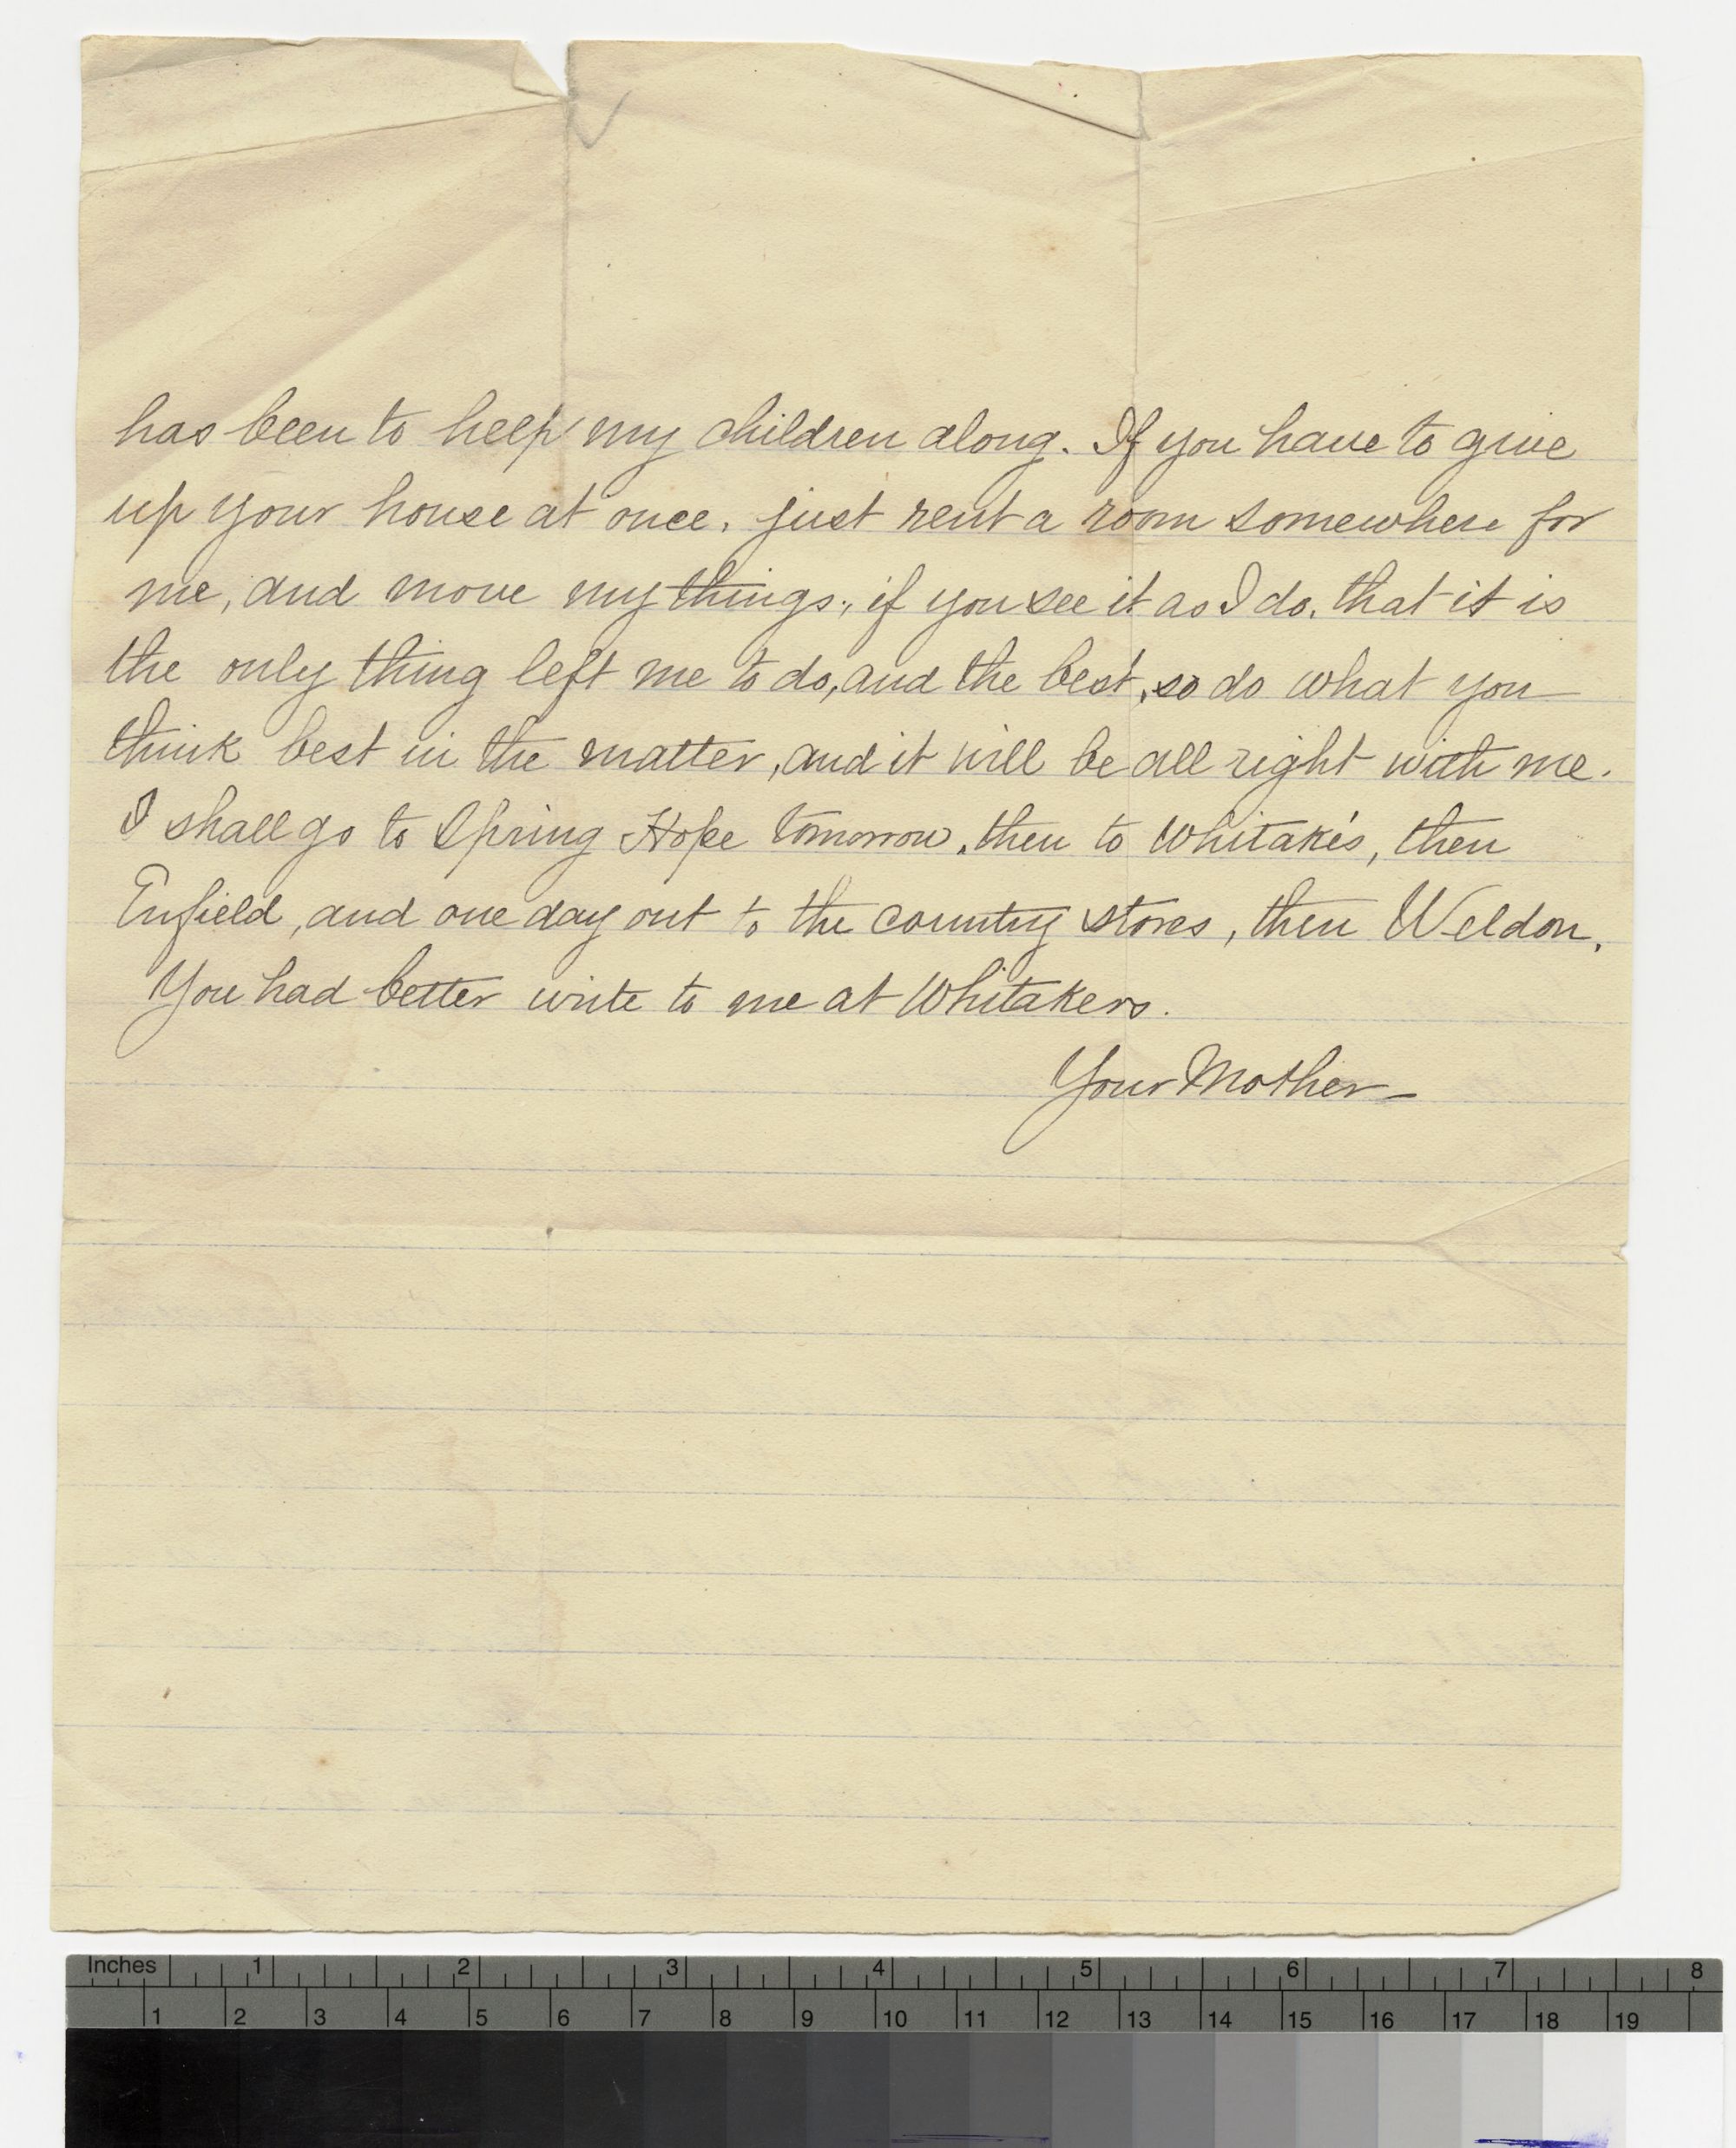 has been to help my children along. If you have to give
up your house at once, just rent a room somewhere for
me, and move my things, if you see it as I do, that it is
the only thing left me to do, and the best, so do what you
think best in the matter, and it will be all right with me.
I shall go to Spring Hope tomorrow, then to Whitake's, then
Enfield, and one day out to the country stores, then Weldon.
You had better write to me at Whitakers.
Your Mother
Inches 1 2 3 4 5 6 7 8
1 2 3 4 5 6 7 8 9 10 11 12 13 14 15 16 17 18 19